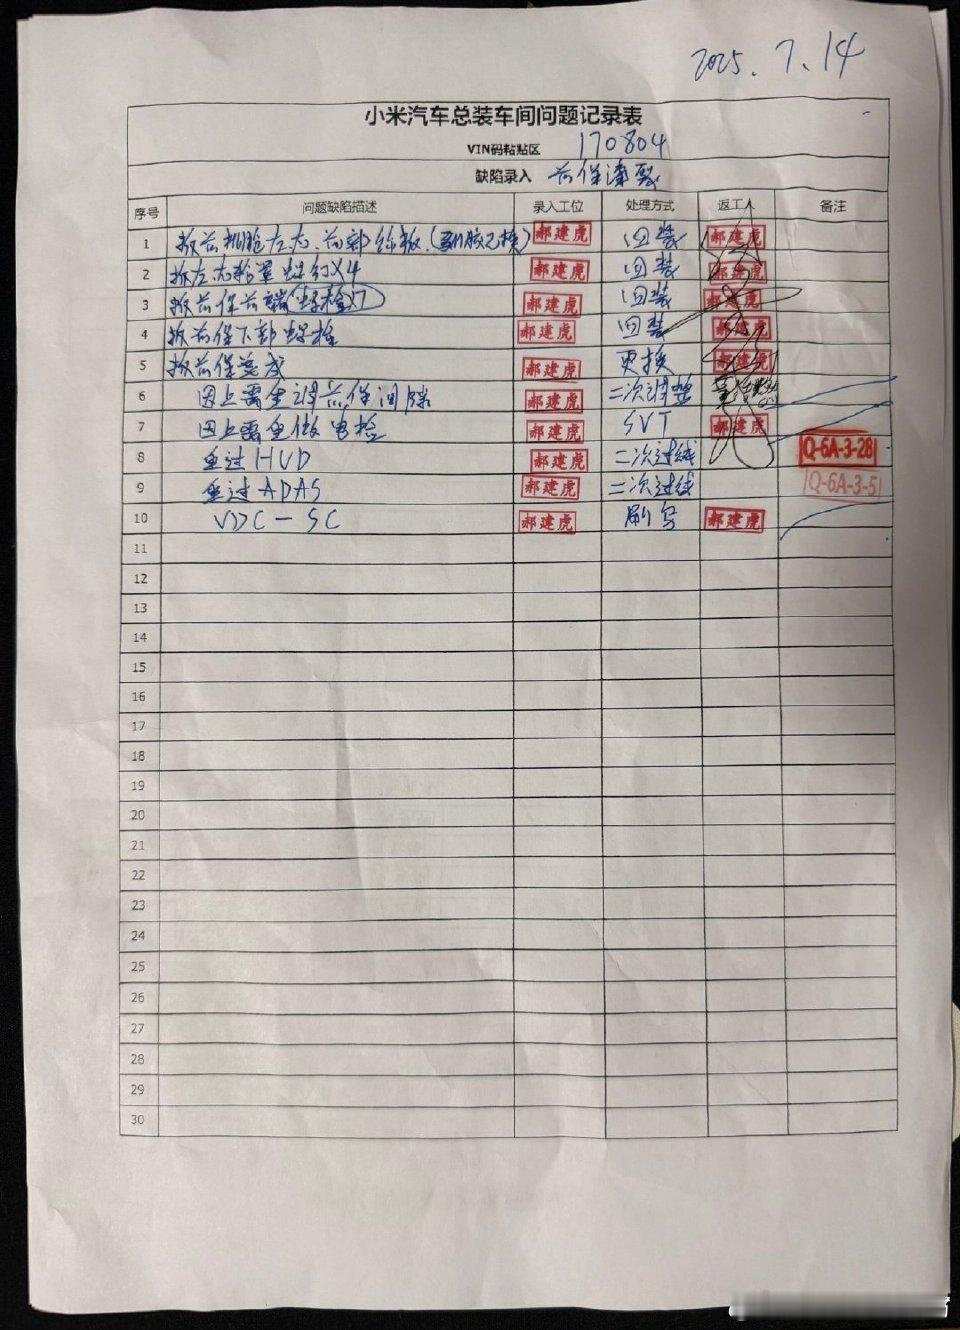 2025.7.14
小米汽车总装车间问题记录表
VIN码粘贴区 170804
缺陷录入 前保漆裂
序号 问题缺陷描述 录入工位 处理方式 返工人 备注
1 拆前机舱左右、前部饰板 郝建虎 回装 郝建虎
2 拆左右轮罩螺钉X4 郝建虎 回装 郝建虎
3 拆前保前端 郝建虎 回装 郝建虎
4 拆前保下部螺栓 郝建虎 回装 郝建虎
5 拆前保总成 郝建虎 更换 郝建虎
6 因上需重调前保间隙 郝建虎 二次调整
7 因上需重做电检 郝建虎 SVT 郝建虎
8 重过HUD 郝建虎 二次过线 Q-6A-3-28
9 重过ADAS 郝建虎 二次过线 Q-6A-3-51
10 VDC-SC 郝建虎 刷写 郝建虎
11
12
13
14
15
16
17
18
19
20
21
22
23
24
25
26
27
28
29
30